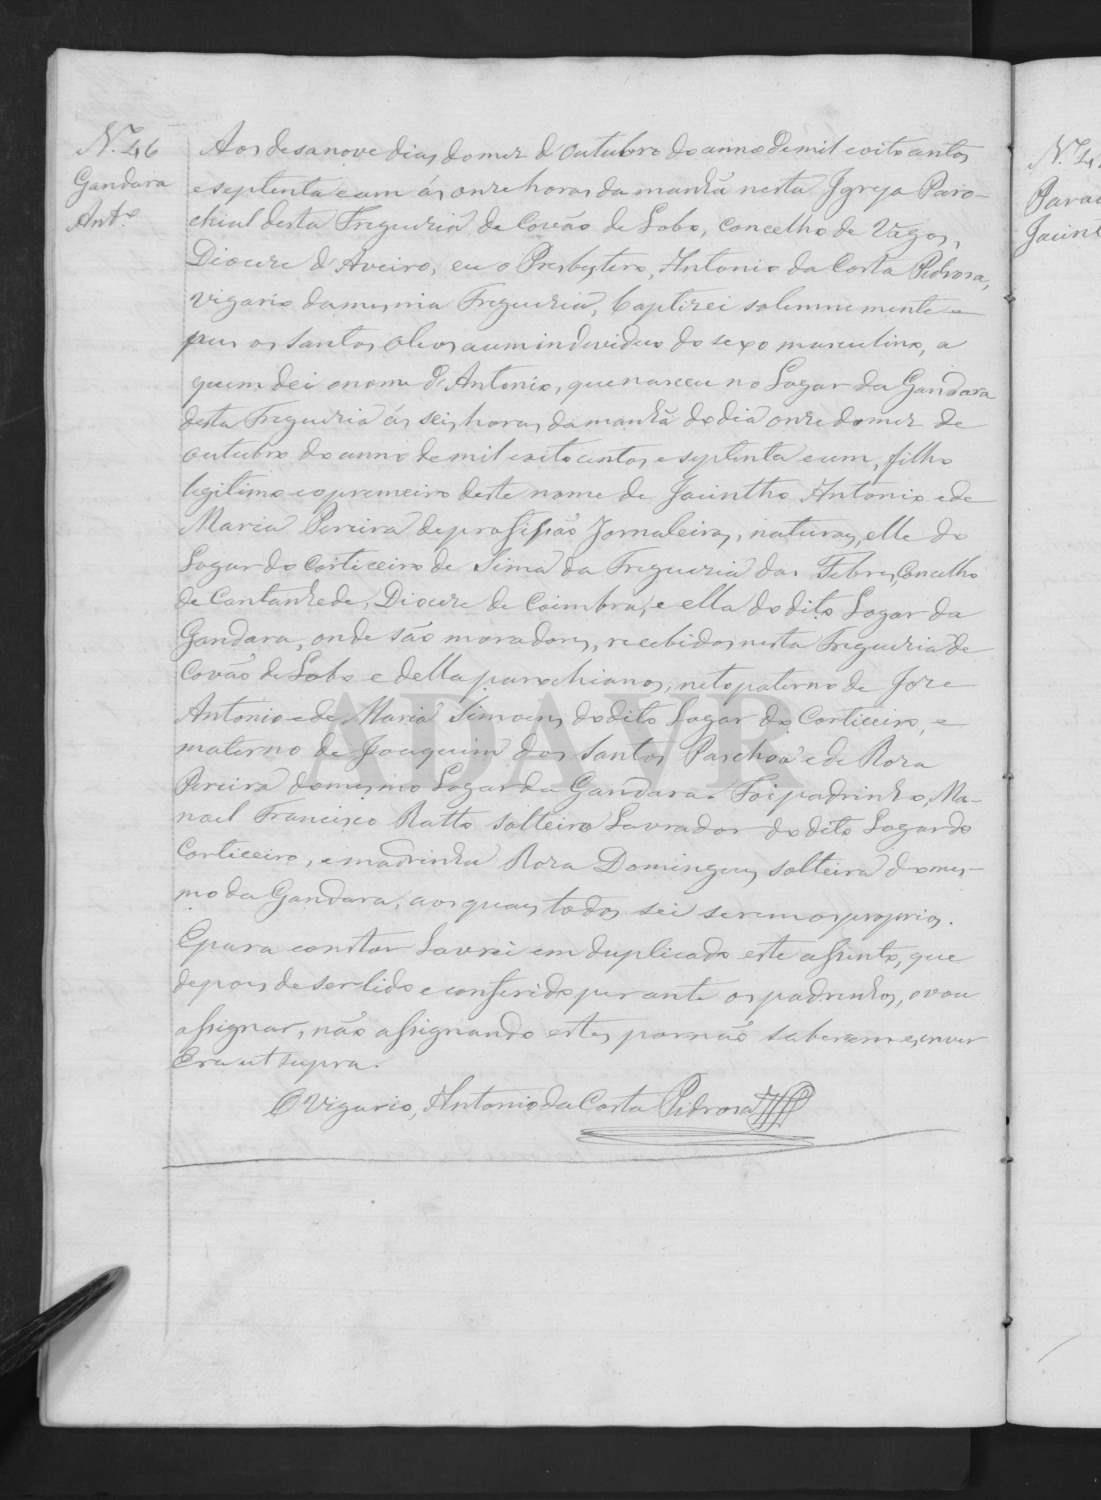 N.º 46
Gandara
Ant.º
Aos desanove dias do mez d'Outubro do anno de mil oito centos
e septenta e um ás onze horas da manhã nesta Igreja Paro-
chial desta Freguezia de Covão de Lobo, Concelho de Vagos,
Diocese d'Aveiro, eu o Presbytero, Antonio da Costa Pedrosa,
Vigario da mesma Freguezia, baptizei solemnemente e
puz os Santos Oleos a um individuo do sexo masculino, a
quem dei o nome d'Antonio, que nasceu no Logar da Gandara
desta Freguezia ás seis horas da manhã do dia onze do mez de
Outubro do anno de mil oito centos e septenta e um, filho
legitimo e o premeiro deste nome de Jacintho Antonio e de
Maria Pereira de profissão Jornaleiros, naturaes, elle do
Logar do Corticeiro de Sima da Freguezia das Febres, Concelho
de Cantanhede, Diocese de Coimbra, e ella do dito Logar da
Gandara, onde são moradores, recebidos nesta Freguezia de
Covão de Lobo e della parochianos, neto paterno de Joze
Antonio e de Maria Simoens do dito Logar do Corticeiro, e
materno de Joaquim dos Santos Paschoa e de Roza
Pereira do mesmo Logar da Gandara. Foi padrinho, Ma-
noel Francisco Ratto solteiro Lavrador do dito Logar do
Corticeiro, e madrinha Roza Domingues solteira do mes-
mo da Gandara, aos quaes todos sei serem os proprios.
E para constar Lavrei em duplicado este assento, que
depois de ser lido e conferido perante os padrinhos, o vou
assignar, não assignando estes por não saberem escrever
Era ut supra.
O Vigario, Antonio da Costa Pedrosa
ADAVR
N.º 4
Jacint